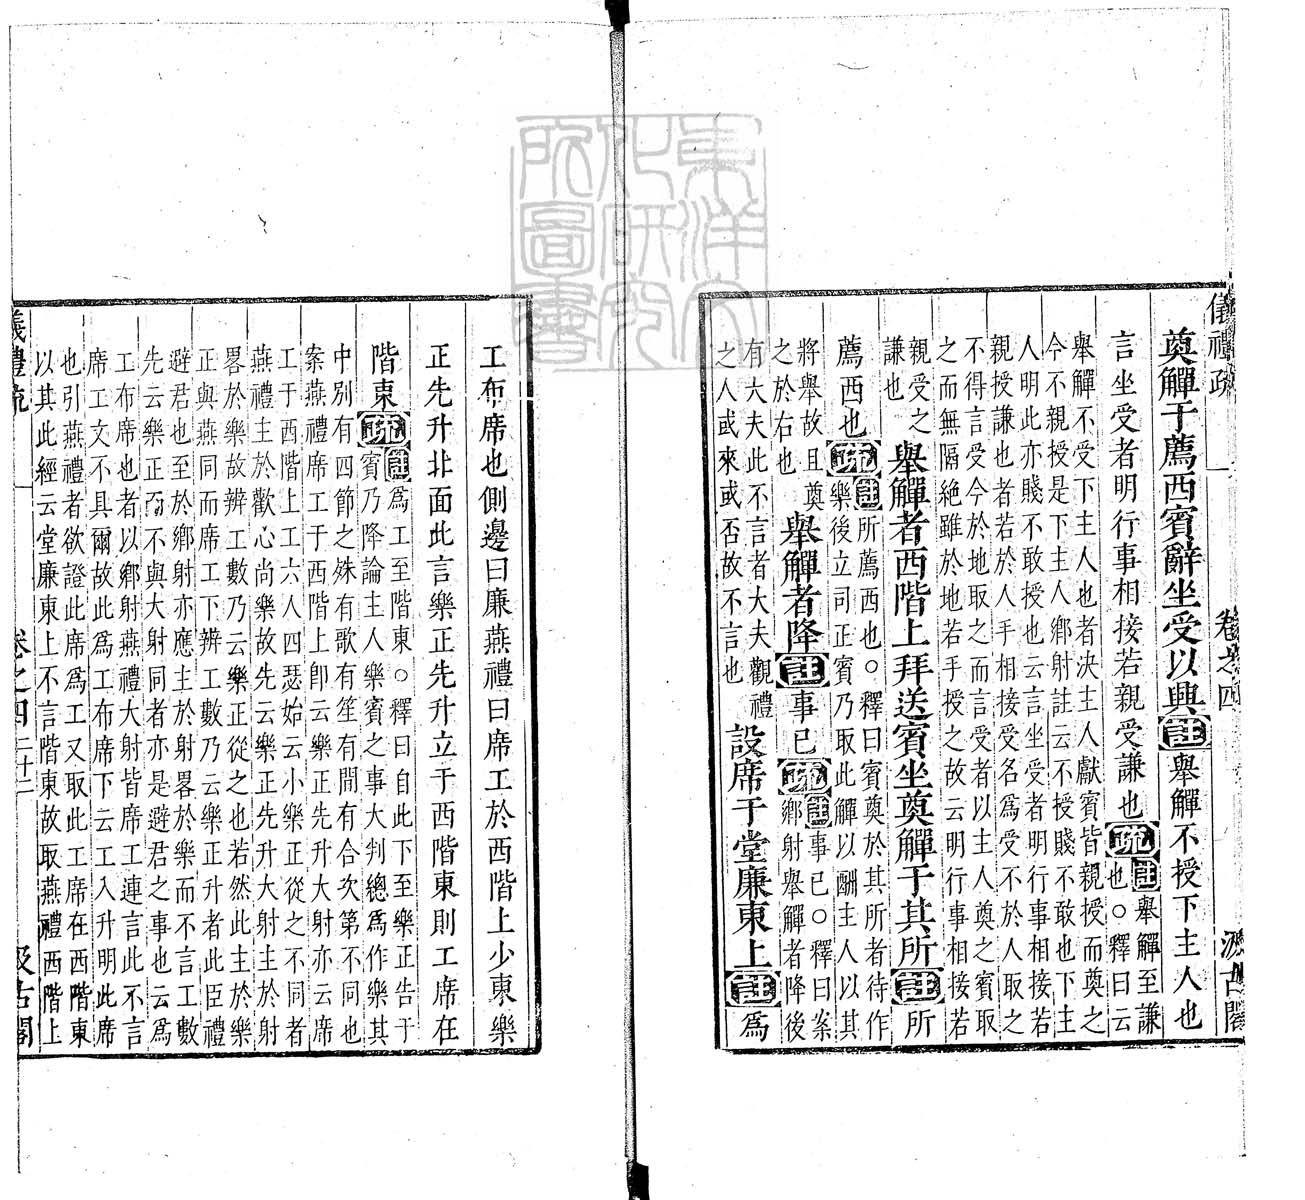 儀禮疏
卷之四
汲古閣
奠觶于薦西賓辭坐受以興註舉觶不授下主人也
言坐受者明行事相接若親受謙也疏註舉觶至謙
也○釋曰云
舉觶不受下主人也者決主人獻賓皆親授而奠之
今不親授是下主人鄉射註云不授賤不敢也下主
人明此亦賤不敢授也云言坐受者明行事相接若
親授謙也者若於人手相接受名為受不於人取之
不得言受今於地取之而言受者以主人奠之賓取
之而無隔絕雖於地若手授之故云明行事相接若
親受之
謙也
舉觶者西階上拜送賓坐奠觶于其所註所
薦西也疏註所薦西也○釋曰賓奠於其所者待作
樂後立司正賓乃取此觶以酬主人以其
將舉故且奠
之於右也
舉觶者降註事已疏註事已○釋曰案
鄉射舉觶者降後
有大夫此不言者大夫觀禮
之人或來或否故不言也
設席于堂廉東上註為
工布席也側邊曰廉燕禮曰席工於西階上少東樂
正先升北面此言樂正先升立于西階東則工席在
階東疏註為工至階東○釋曰自此下至樂正告于
賓乃降論主人樂賓之事大判總為作樂其
中別有四節之殊有歌有笙有間有合次第不同也
案燕禮席工于西階上卽云樂正先升大射亦云席
工于西階上工六人四瑟始云小樂正從之不同者
燕禮主於歡心尚樂故先云樂正先升大射主於射
畧於樂故辨工數乃云樂正從之也若然此主於樂
正與燕同而席工下辨工數乃云樂正升者此臣禮
避君也至於鄉射亦應主於射畧於樂而不言工數
先云樂正而不與大射同者亦是避君之事也云為
工布席也者以鄉射燕禮大射皆席工連言此不言
席工文不具爾故此為工布席下云工入升明此席
也引燕禮者欲證此席為工又取此工席在西階東
以其此經云堂廉東上不言階東故取燕禮西階上
儀禮疏
卷之四
二十二
汲古閣